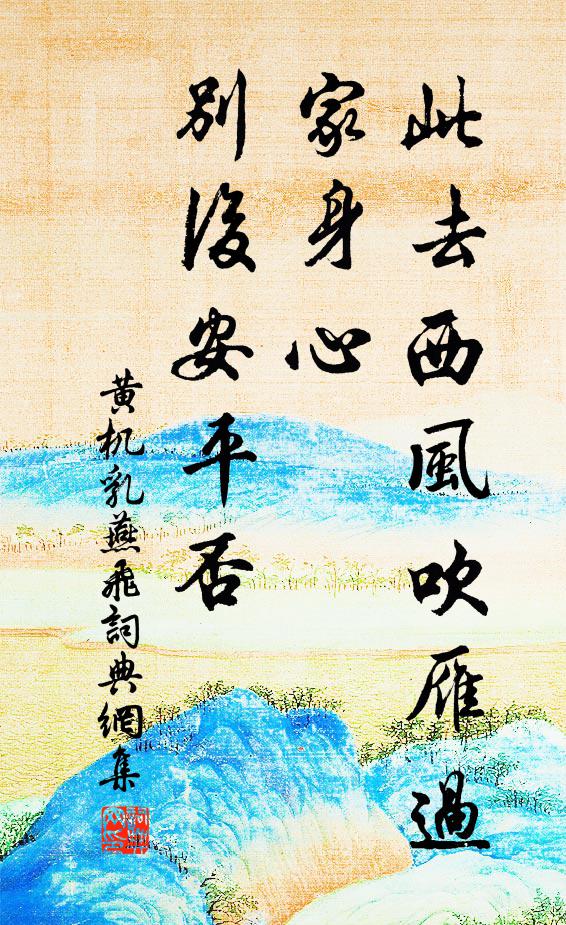 此去西風吹雁過
家身心
別後安平否
黄机乳燕飛詞典網集